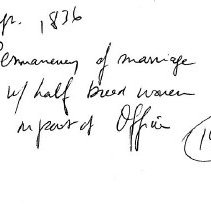 pr. 1836
Permanency of marriage
w/ half breed women
on part of Office